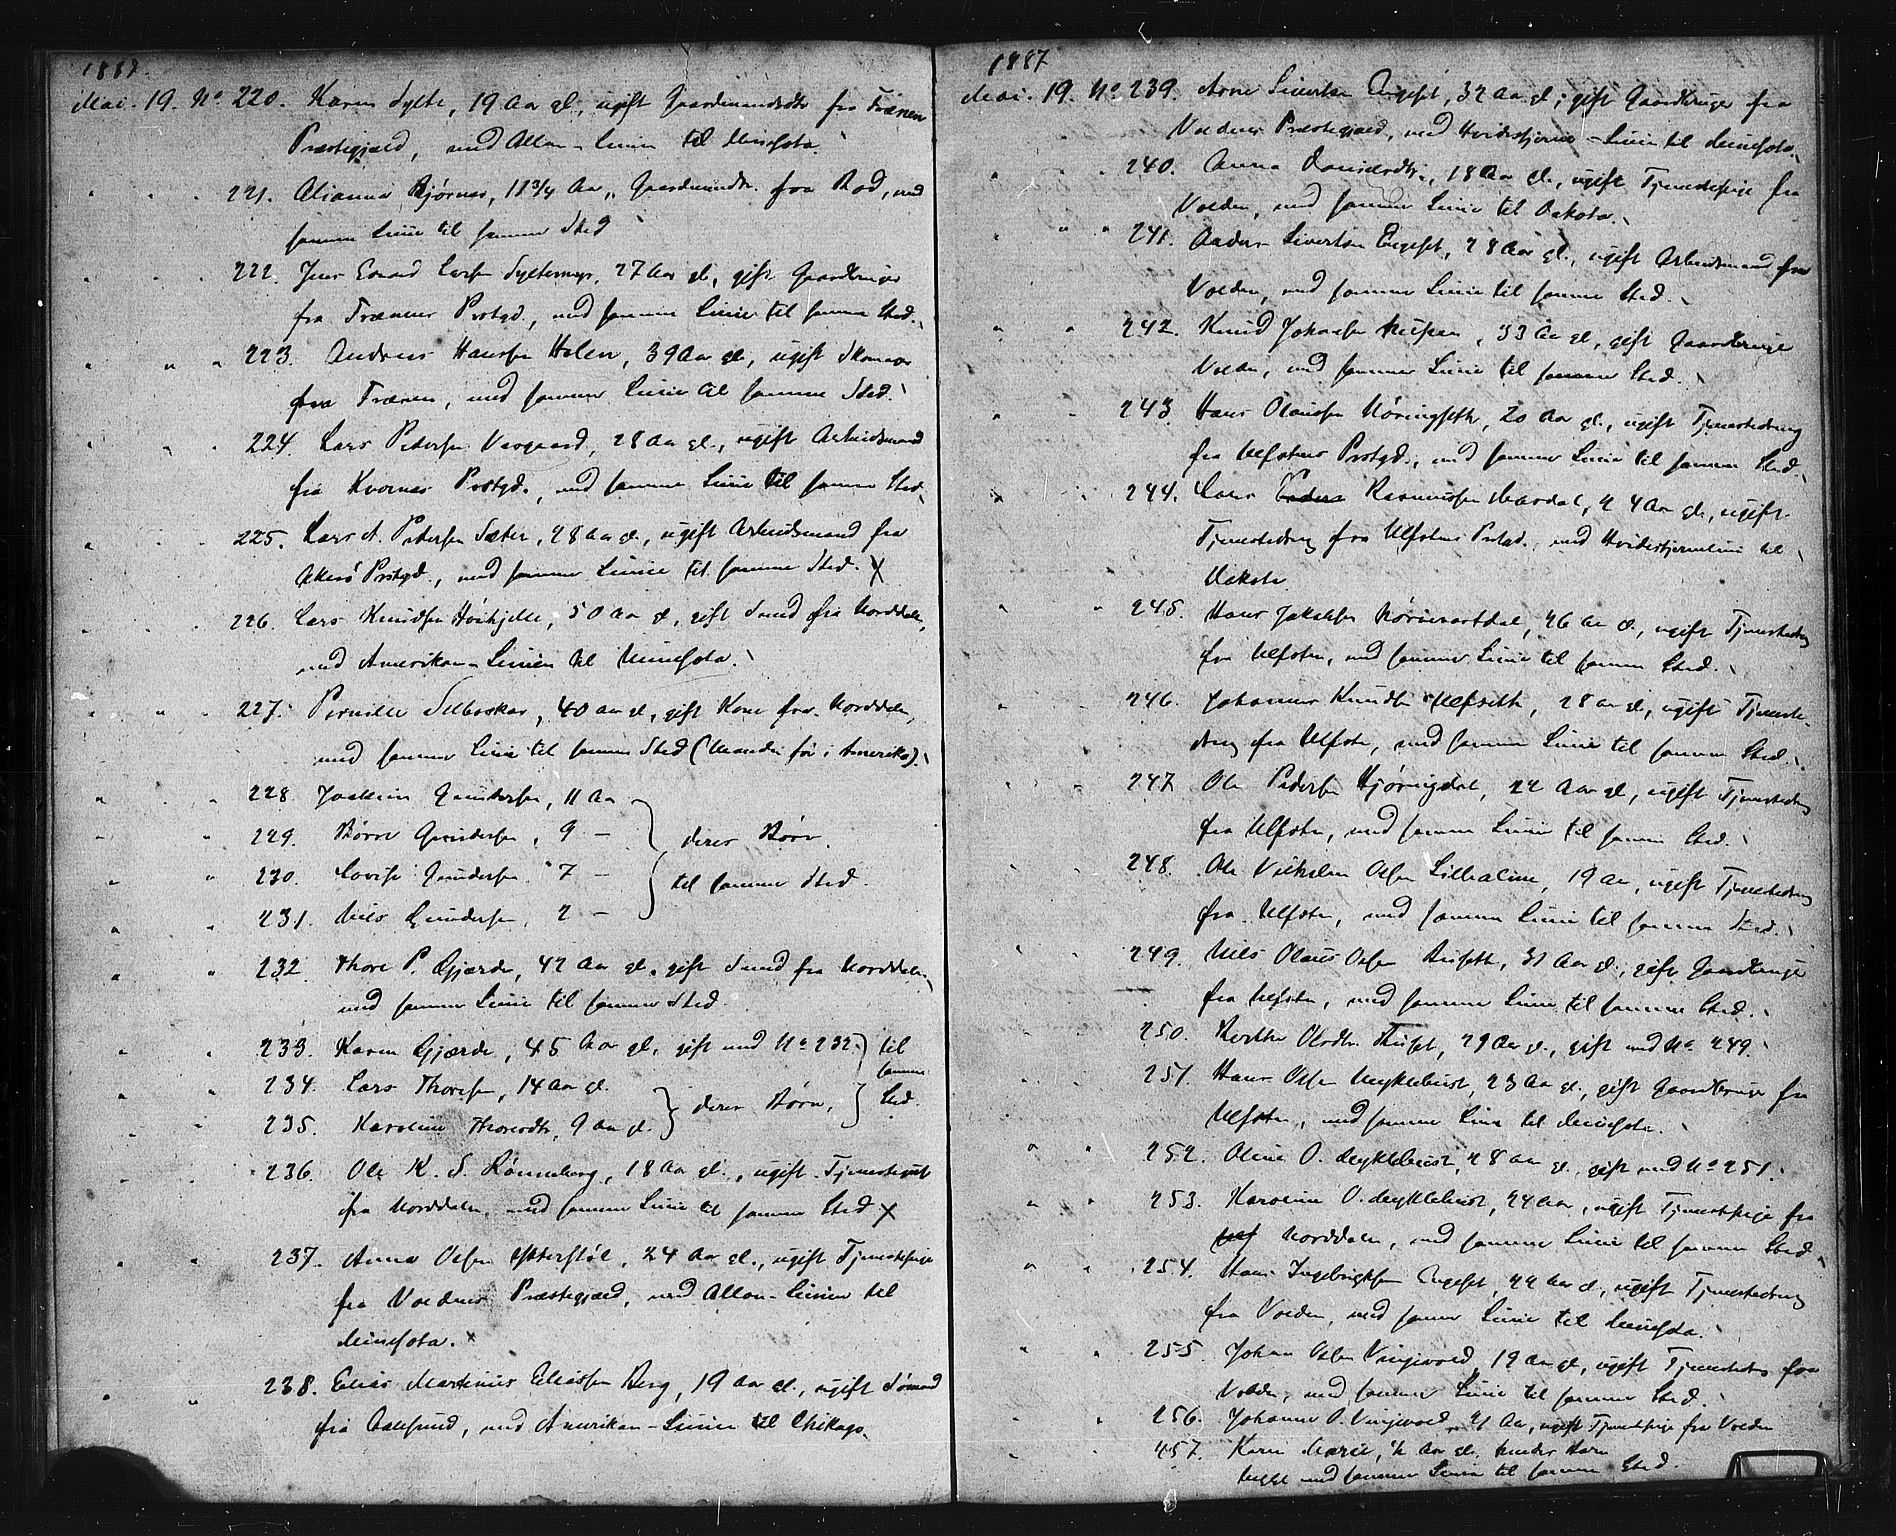 1887.
Mai. 19. No 220. Karen Sylte, 19 Aar gl., ugift Gaardmandsdtr fra Frænen
Præstegjæld, med Allan-Linien til Minesota.
221. Bjørnes, 18 3/4 Aar, Gaardmandsdtr. fra Bod, med
samme Linie til samme Sted
222. Jens Larsen Syltemyr, 27 Aar gl., gift Gaardbruger
fra Frænens Prstgd., med samme Linie til samme Sted.
223. Andreas Hansen Holen, 39 Aar gl., ugift Skomager
fra Frænen, med samme Linie til samme Sted.
224. Lars Pedersen Vaagaard, 28 Aar gl., ugift Arbeidsmand
fra Kvernes Prstgd., med samme Linie til samme Sted.
225. Lars A. Pedersen Sæter, 28 Aar gl., ugift Arbeidsmand fra
Akerø Prstgd., med samme Linie til samme Sted. X
226. Lars Knudsen, 50 Aar gl., gift Smed fra Norddalen,
med Amerikan-Linien til Minnesota.
227. Pernille Selboskar, 40 Aar gl., gift Kone fra Norddalen,
med samme Linie til samme Sted (Manden før i Amerika).
228. Joakim Gundersen, 11 Aar
229. Børre Gundersen, 9 — deres Børn.
230. Lovise Gundersen, 7 — til samme Sted.
231. Nils Gundersen, 2 —
232. Thore P. Gjærde, 42 Aar gl., gift Smed fra Norddalen,
med samme Linie til samme Sted.
233. Karen Gjærde, 45 Aar gl., gift med No 232. til
samme
234. Lars Thoresen, 14 Aar gl. deres Børn, Sted.
235. Karoline Thoresdtr, 9 Aar gl.
236. Ole K. S. Rønneberg, 18 Aar gl., ugift Tjenestegut
fra Norddalen, med samme Linie til samme Sted X
237. Anna Olsen, 24 Aar gl., ugift Tjenestepige
fra Voldens Præstegjæld, med Allan-Linien til
Minesota. x
238. Elias Martinus Eliassen Berg, 19 Aar gl., ugift Sømand
fra Aalesund, med Amerikan-Linien til Chikago.
1887
Mai. 19. No 239. Arne Sivertsen Engeset, 32 Aar gl., gift Gaardbruger fra
Voldens Præstegjæld, med Hvidestjerne-Linie til Minesota.
240. Anna, 18 Aar gl., ugift Tjenestepige fra
Volden, med samme Linie til Dakota.
241. Anders Sivertsen Engeset, 28 Aar gl., ugift Arbeidsmand fra
Volden, med samme Linie til samme Sted.
242. Knud Johansen, 33 Aar gl., gift Gaardbruger
Volden, med samme Linie til samme Sted.
243. Hans Olaussen, 20 Aar gl., ugift Tjenestedreng
fra Ulfstens Prstgd., med samme Linie til samme Sted.
244. Lars Rasmussen Mardal, 24 Aar gl., ugift
Tjenestedreng fra Ulfstens Prstgd., med Hvidestjernelinie til
Dakota
245. Hans Jakobsen, 26 Aar gl., ugift Tjenestedreng
fra Ulfsten, med samme Linie til samme Sted.
246. Johannes Knudsen Ulfseth, 28 Aar gl., ugift Tjeneste-
dreng fra Ulfsten, med samme Linie til samme Sted.
247. Ole Pedersen Hjørungdal, 22 Aar gl., ugift Tjenestedreng
fra Ulfsten, med samme Linie til samme Sted.
248. Ole Vilhelm Olsen, 19 Aar, ugift Tjenestedreng
fra Ulfsten, med samme Linie til samme Sted.
249. Nils Olaus Olsen, 31 Aar gl., gift Gaardbruger
fra Ulfsten, med samme Linie til samme Sted.
250. Olsdtr., 29 Aar gl., gift med No 249.
251. Hans Olsen Myklebust, 23 Aar gl., gift Gaardbruger fra
Ulfsten, med samme Linie til Minesota.
252. Oline O. Myklebust, 28 Aar gl., gift med No 251.
253. Karoline O. Myklebust, 24 Aar, ugift Tjenestepige fra
Norddalen, med samme Linie til samme Sted
254. Hans Ingebrigtsen Engeset, 22 Aar gl., ugift Tjenestedreng
fra Volden, med samme Linie til Minesota.
255. Johan Olsen, 19 Aar gl., ugift Tjenestedreng fra
Volden, med samme Linie til samme Sted.
256. Johanne O., 21 Aar, ugift Tjenestepige fra Volden
457. Karen Marie, 1/2 Aar gl. hendes Barn
begge med samme Linie til samme Sted.